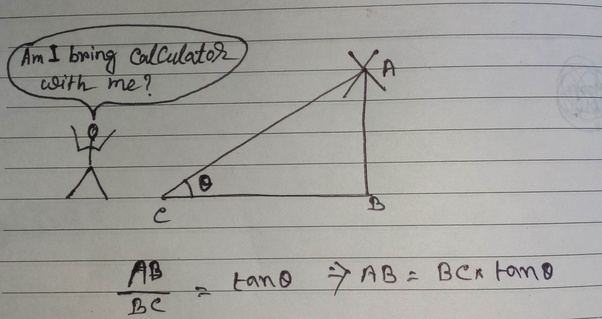 Am I bring calculator
with me?
A
θ
C
B
AB/BC = tanθ ⇒ AB = BC × tanθ